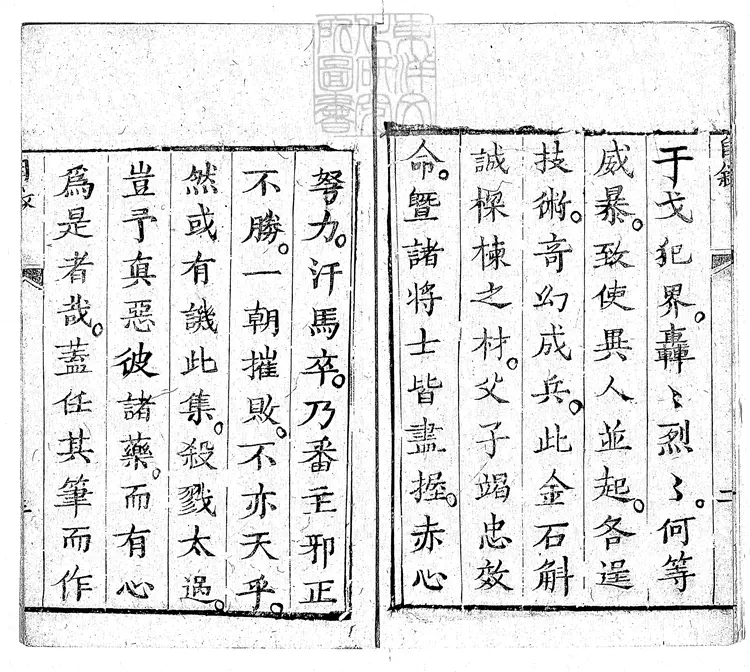 于戈犯界。轟〻烈〻。何等
威暴。致使異人並起。各逞
技術。奇幻成兵。此金石斛
誠樑棟之材。父子竭忠效
命。暨諸將士皆盡握。赤心
努力。汗馬卒。乃番主邪正
不勝。一朝摧敗。不亦天乎。
然或有譏此集。殺戮太過。
豈予真惡彼諸藥。而有心
爲是者哉。蓋任其筆而作
自敘
二
東洋文化研究所圖書